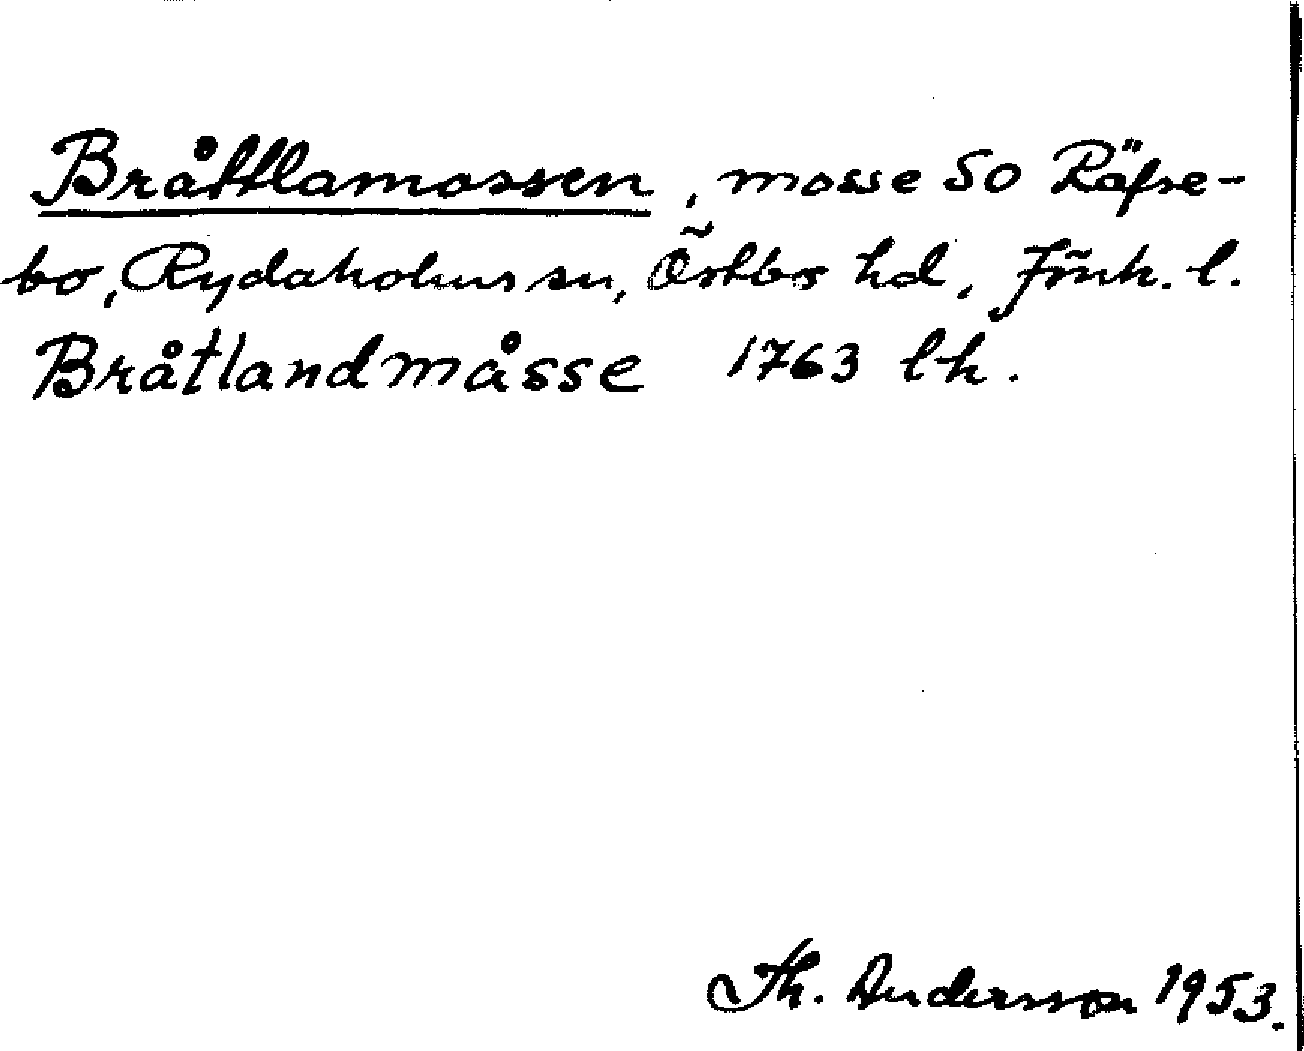 Bråttlamossen, mosse SO Räfse-
bo, Rydaholms sn, Östbo hd, Jönk. l.
Bråtlandmåsse 1763 lh.
Th. Andersson 1953.